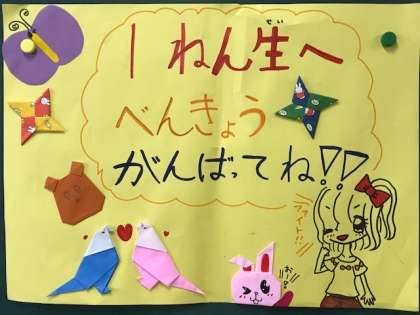 1ねん生へ
せい
べんきょう
がんばってね!!
ファイト!!
おー!